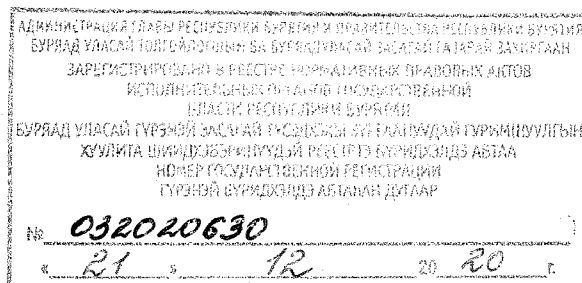 АДМИНИСТРАЦИЯ ГЛАВЫ РЕСПУБЛИКИ БУРЯТИЯ И ПРАВИТЕЛЬСТВА РЕСПУБЛИКИ БУРЯТИЯ
БУРЯАД УЛАСАЙ ТОЛГОЙЛОГШЫН БА БУРЯАД УЛАСАЙ ЗАСАГАЙ ГАЗАРАЙ ЗАХИРГААН
ЗАРЕГИСТРИРОВАНО В РЕЕСТРЕ НОРМАТИВНЫХ ПРАВОВЫХ АКТОВ
ИСПОЛНИТЕЛЬНЫХ ОРГАНОВ ГОСУДАРСТВЕННОЙ
ВЛАСТИ РЕСПУБЛИКИ БУРЯТИЯ
БУРЯАД УЛАСАЙ ГҮРЭНЭЙ ЗАСАГАЙ
ХУУЛИТА
АБТАА
НОМЕР ГОСУДАРСТВЕННОЙ РЕГИСТРАЦИИ
ГҮРЭНЭЙ БҮРИДХЭЛДЭ АБТАҺАН ДУГААР
№ 032020630
« 21 » 12 20 20 г.